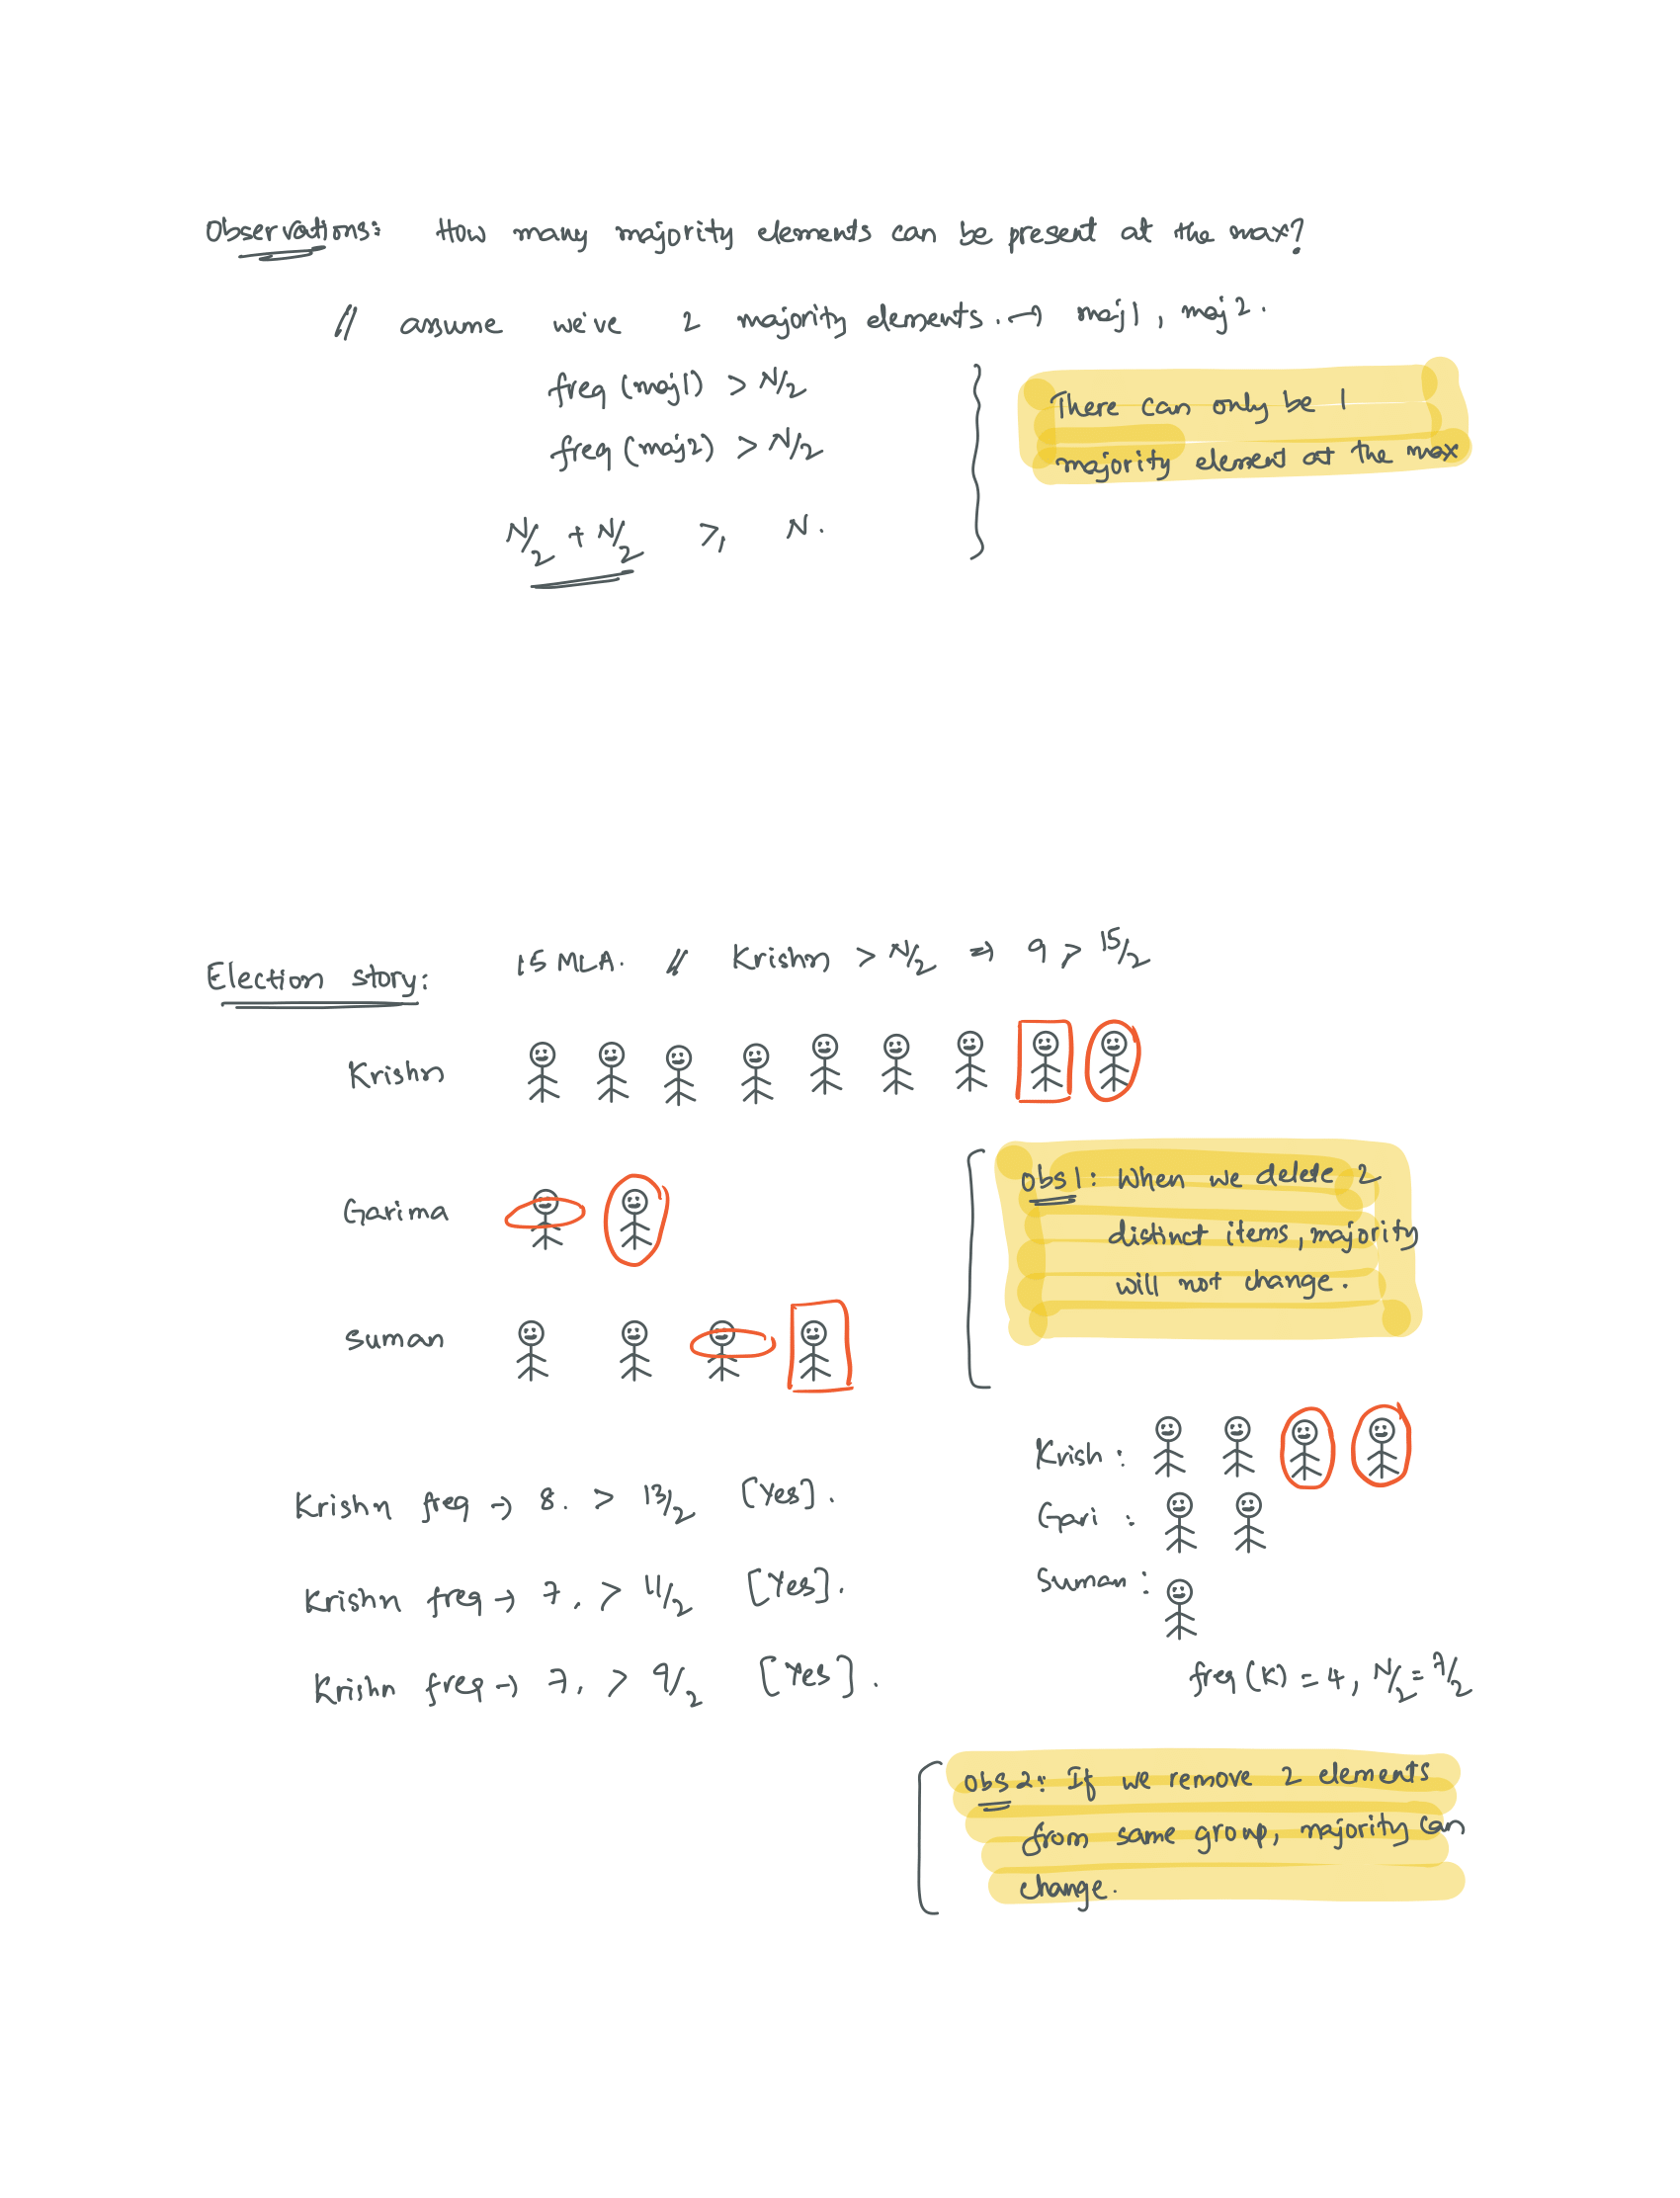 Observations: How many majority elements can be present at the max?
// assume we've 2 majority elements. → maj1, maj2.
freq (maj1) > N/2
freq (maj2) > N/2
N/2 + N/2 >, N.
There can only be 1
majority element at the max
Election story: 15 MLA. // Krishn > N/2 ⇒ 9 > 15/2
Krishn
Garima
Suman
obs1: When we delete 2
distinct items, majority
will not change.
Krishn freq → 8. > 13/2 [Yes].
Krishn freq → 7, > 11/2 [Yes].
Krishn freq → 7, > 9/2 [Yes].
Krish:
Gari :
Suman:
freq (K) = 4, N/2 = 7/2
obs 2: If we remove 2 elements
from same group, majority can
change.